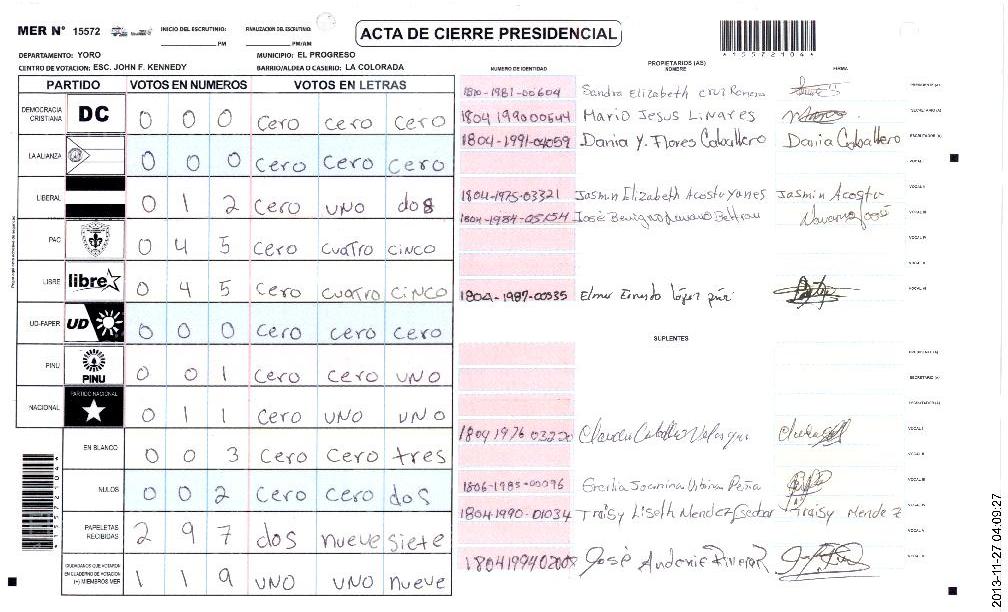 MER Nº 15572 INICIO DEL ESCRUTINIO: PM FINALIZACION DEL ESCRUTINIO: PM/AM
ACTA DE CIERRE PRESIDENCIAL
*15572104*
DEPARTAMENTO: YORO MUNICIPIO: EL PROGRESO
CENTRO DE VOTACION: ESC. JOHN F. KENNEDY BARRIO/ALDEA O CASERIO: LA COLORADA
PARTIDO VOTOS EN NUMEROS VOTOS EN LETRAS
DEMOCRACIA CRISTIANA DC 0 0 0 cero cero cero
LA ALIANZA 0 0 0 cero cero cero
LIBERAL 0 1 2 cero uno dos
PAC 0 4 5 cero cuatro cinco
LIBRE libre 0 4 5 cero cuatro cinco
UD-FAPER UD 0 0 0 cero cero cero
PINU PINU 0 0 1 cero cero uno
NACIONAL PARTIDO NACIONAL 0 1 1 cero uno uno
EN BLANCO 0 0 3 cero cero tres
NULOS 0 0 2 cero cero dos
PAPELETAS RECIBIDAS 2 9 7 dos nueve siete
CIUDADANOS QUE VOTARON EN CUADERNO DE VOTACION (+) MIEMBROS MER 1 1 9 uno uno nueve
*15572104*
NUMERO DE IDENTIDAD PROPIETARIOS (AS) NOMBRE FIRMA
1981-00604 Sandra Elizabeth Cruz PRESIDENTE (A)
1804 1990 00544 Mario Jesus Linares SECRETARIO (A)
1804-1991-04059 Dania Y. Flores Caballero Dania Caballero ESCRUTADOR (A)
VOCAL I
1804-1975-03321 Jasmin Elizabeth Acosta Yanes Jasmin Acosta VOCAL II
1804-1984-05154 José Benigno Navarro Beltran Navarro José VOCAL III
VOCAL IV
VOCAL V
1804-1987-00535 Elmer Ernesto López VOCAL VI
SUPLENTES
PRESIDENTE (A)
SECRETARIO (A)
ESCRUTADOR (A)
1804 1976 03220 Claudia VOCAL I
VOCAL II
1806-1985-00096 Peña VOCAL III
1804 1990-01034 Traisy Liseth Mendez Escobar Traisy Mendez VOCAL IV
VOCAL V
José Rivera
2013-11-27 04:09:27